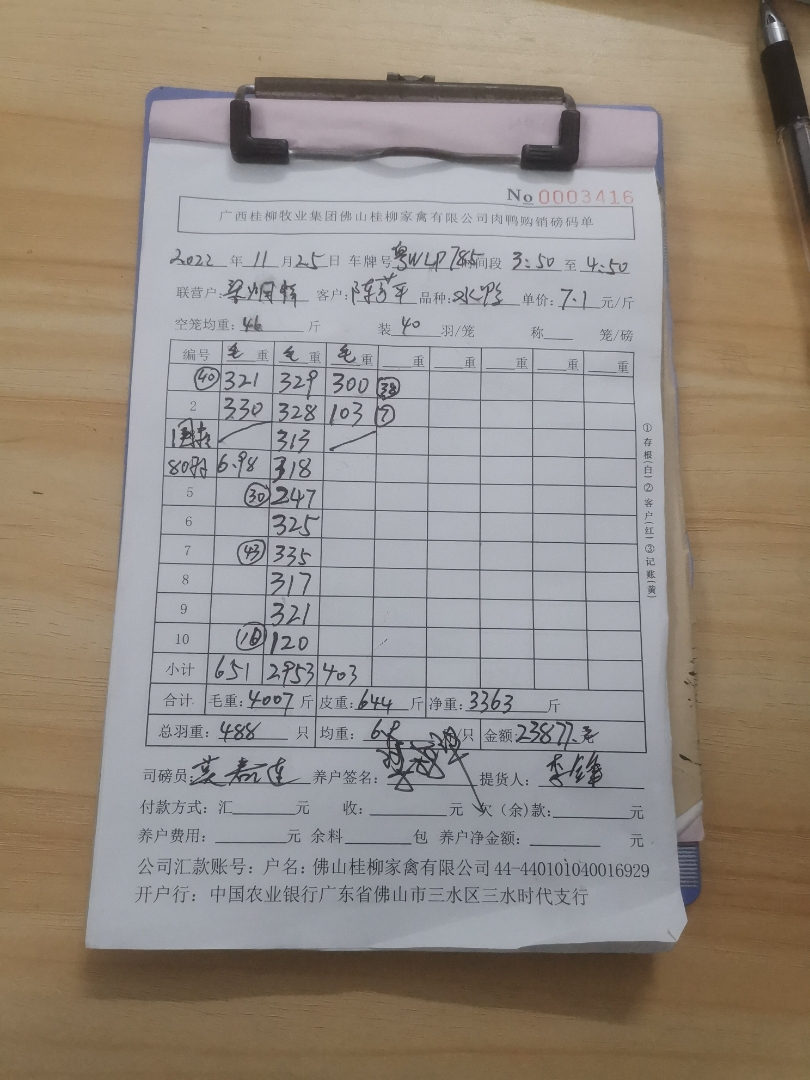 No 0003416
广西桂柳牧业集团佛山桂柳家禽有限公司肉鸭购销磅码单
2022 年 11 月 25 日 车牌号 粤WLP785 时间段 3:50 至 4:50
联营户: 梁 客户: 陈 平 品种: 水鸭 单价: 7.1 元/斤
空笼均重: 46 斤 装 40 羽/笼 称 笼/磅
编号 毛 重 毛 重 毛 重 重 重 重 重 重
40 321 329 300 38
2 330 328 103 7
313
80 6.98 318
5 30 247
6 325
7 43 335
8 317
9 321
10 16 120
小计 651 2953 403
合计 毛重: 4007 斤 皮重: 644 斤 净重: 3363 斤
总羽重: 488 只 均重: 6.9 /只 金额: 23877 元
司磅员: 养户签名: 提货人: 李锋
付款方式: 汇 元 收: 元 欠(余)款: 元
养户费用: 元 余料 包 养户净金额: 元
公司汇款账号: 户名: 佛山桂柳家禽有限公司 44-440101040016929
开户行: 中国农业银行广东省佛山市三水区三水时代支行
①存根(白)②客户(红)③记账(黄)